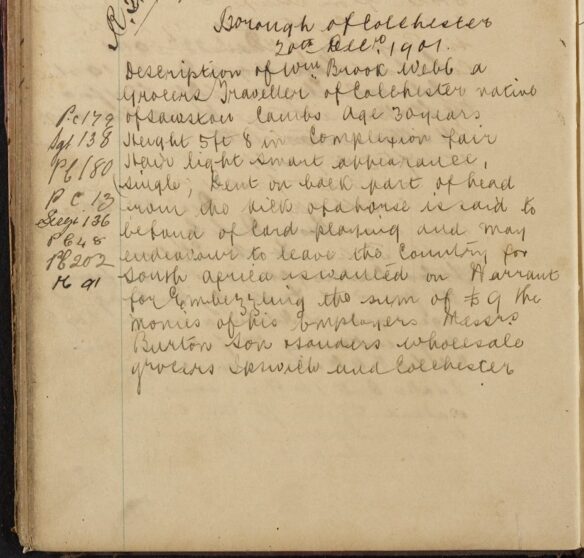 Borough of Colchester
20th Decr. 1901.
Description of Wm Brook Webb a
Grocers Traveller of Colchester native
of Sawston Cambs Age 30 years
Height 5ft 8 in Complexion fair
Hair light smart appearance,
single, Dent on back part of head
from the kick of a horse is said to
be fond of Card playing and may
endeavour to leave the Country for
South Africa is wanted on Warrant
for Embezzling the sum of £9 the
monies of his employers Messrs.
Burton Son & Sanders wholesale
grocers Ipswich and Colchester
Pc 179
Sgt 138
PC 180
P C 13
Sergt 136
PC 48
PC 202